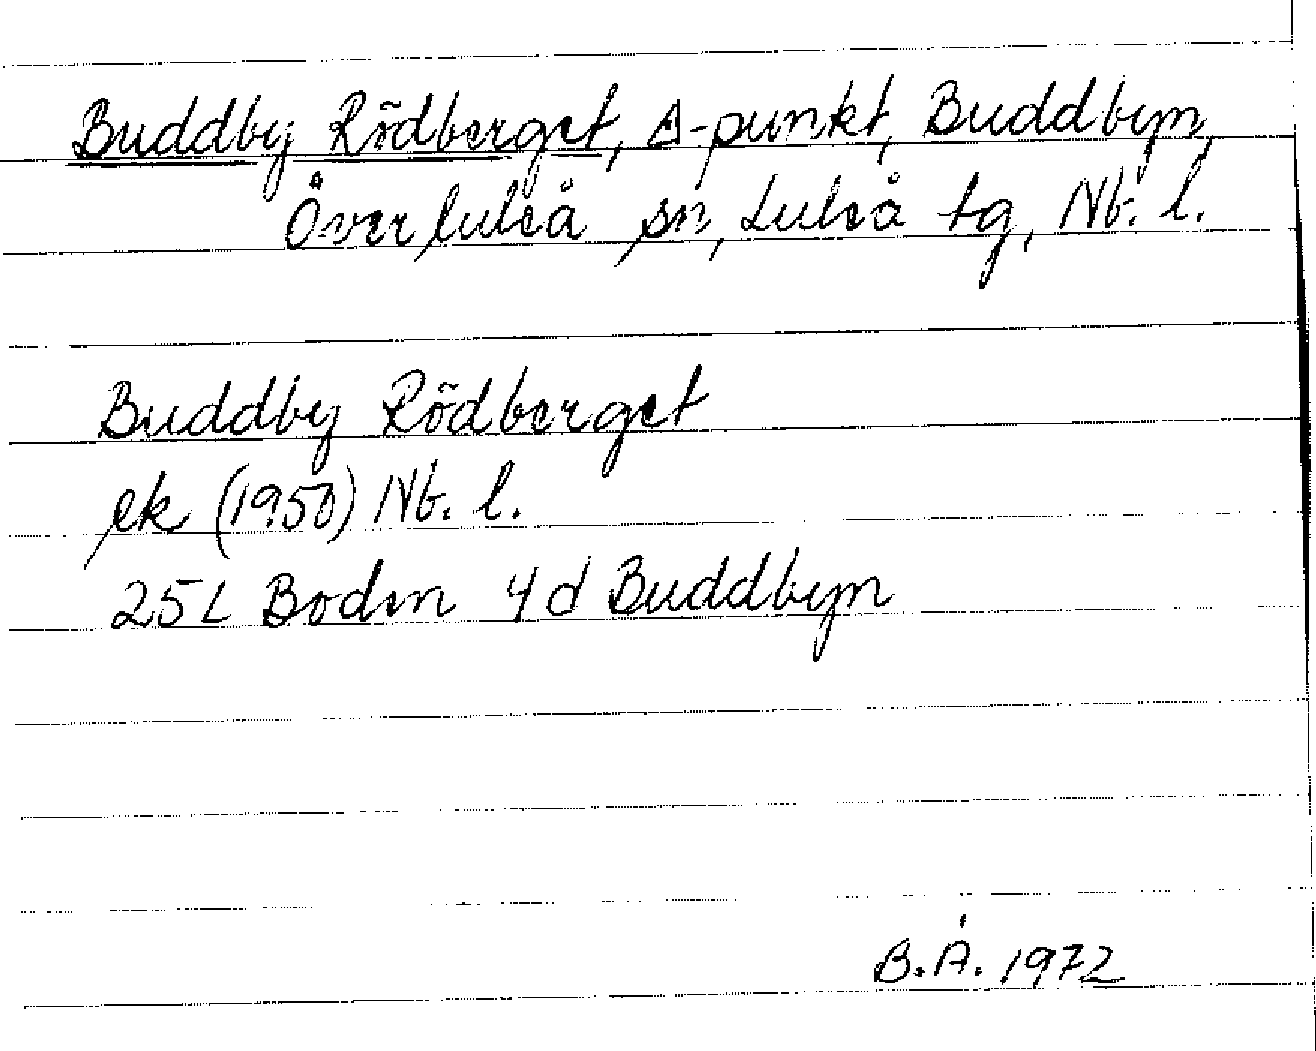 Buddby Rödberget, △-punkt, Buddbyn,
Överluleå sn, Luleå tg, Nb. l.
Buddby Rödberget
ek (1950) Nb. l.
25L Boden 4d Buddbyn
B.Å. 1972